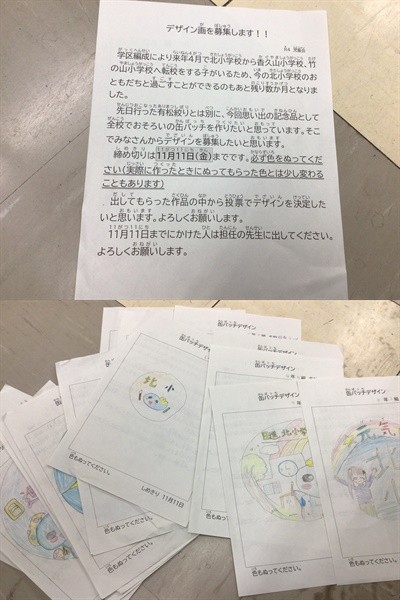 デザイン画を募集します！！
R4 児童会
学区編成により来年4月で北小学校から香久山小学校、竹
の山小学校へ転校をする子がいるため、今の北小学校のお
ともだちと過ごすことができるのもあと残り数か月となりま
した。
先日行った有松絞りとは別に、今回思い出の記念品として
全校でおそろいの缶バッチを作りたいと思っています。そこ
でみなさんからデザインを募集したいと思います。
締め切りは11月11日(金)までです。必ず色をぬってくだ
さい(実際に作ったときにぬってもらった色とは少し変わる
こともあります)
出してもらった作品の中から投票でデザインを決定した
いと思います。よろしくお願いします。
11月11日までにかけた人は担任の先生に出してください。
よろしくお願いします。
缶バッチデザイン
缶バッチデザイン
缶バッチデザイン
缶バッチデザイン
年 組
北小
北小学
元気
色もぬってください。
しめきり 11月11日
色もぬってください。
色もぬってください。
色もぬってください。